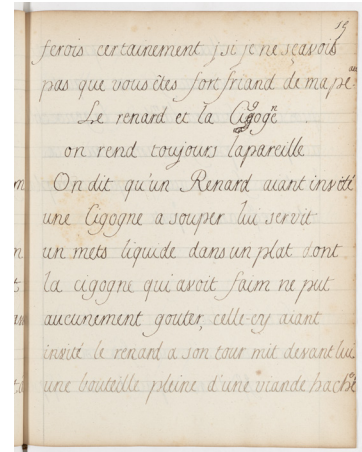 19
ferois certainement, si je ne sçavois
pas que vous étes fort friand de ma peau
Le renard et la Cigogne
on rend toujours la pareille
On dit qu'un Renard aiant invité
une Cigogne a souper lui servit
un mets liquide dans un plat dont
la cigogne qui avoit faim ne put
aucunement gouter, celle-cy aiant
invité le renard a son tour mit devant lui
une bouteille pleine d'une viande haché